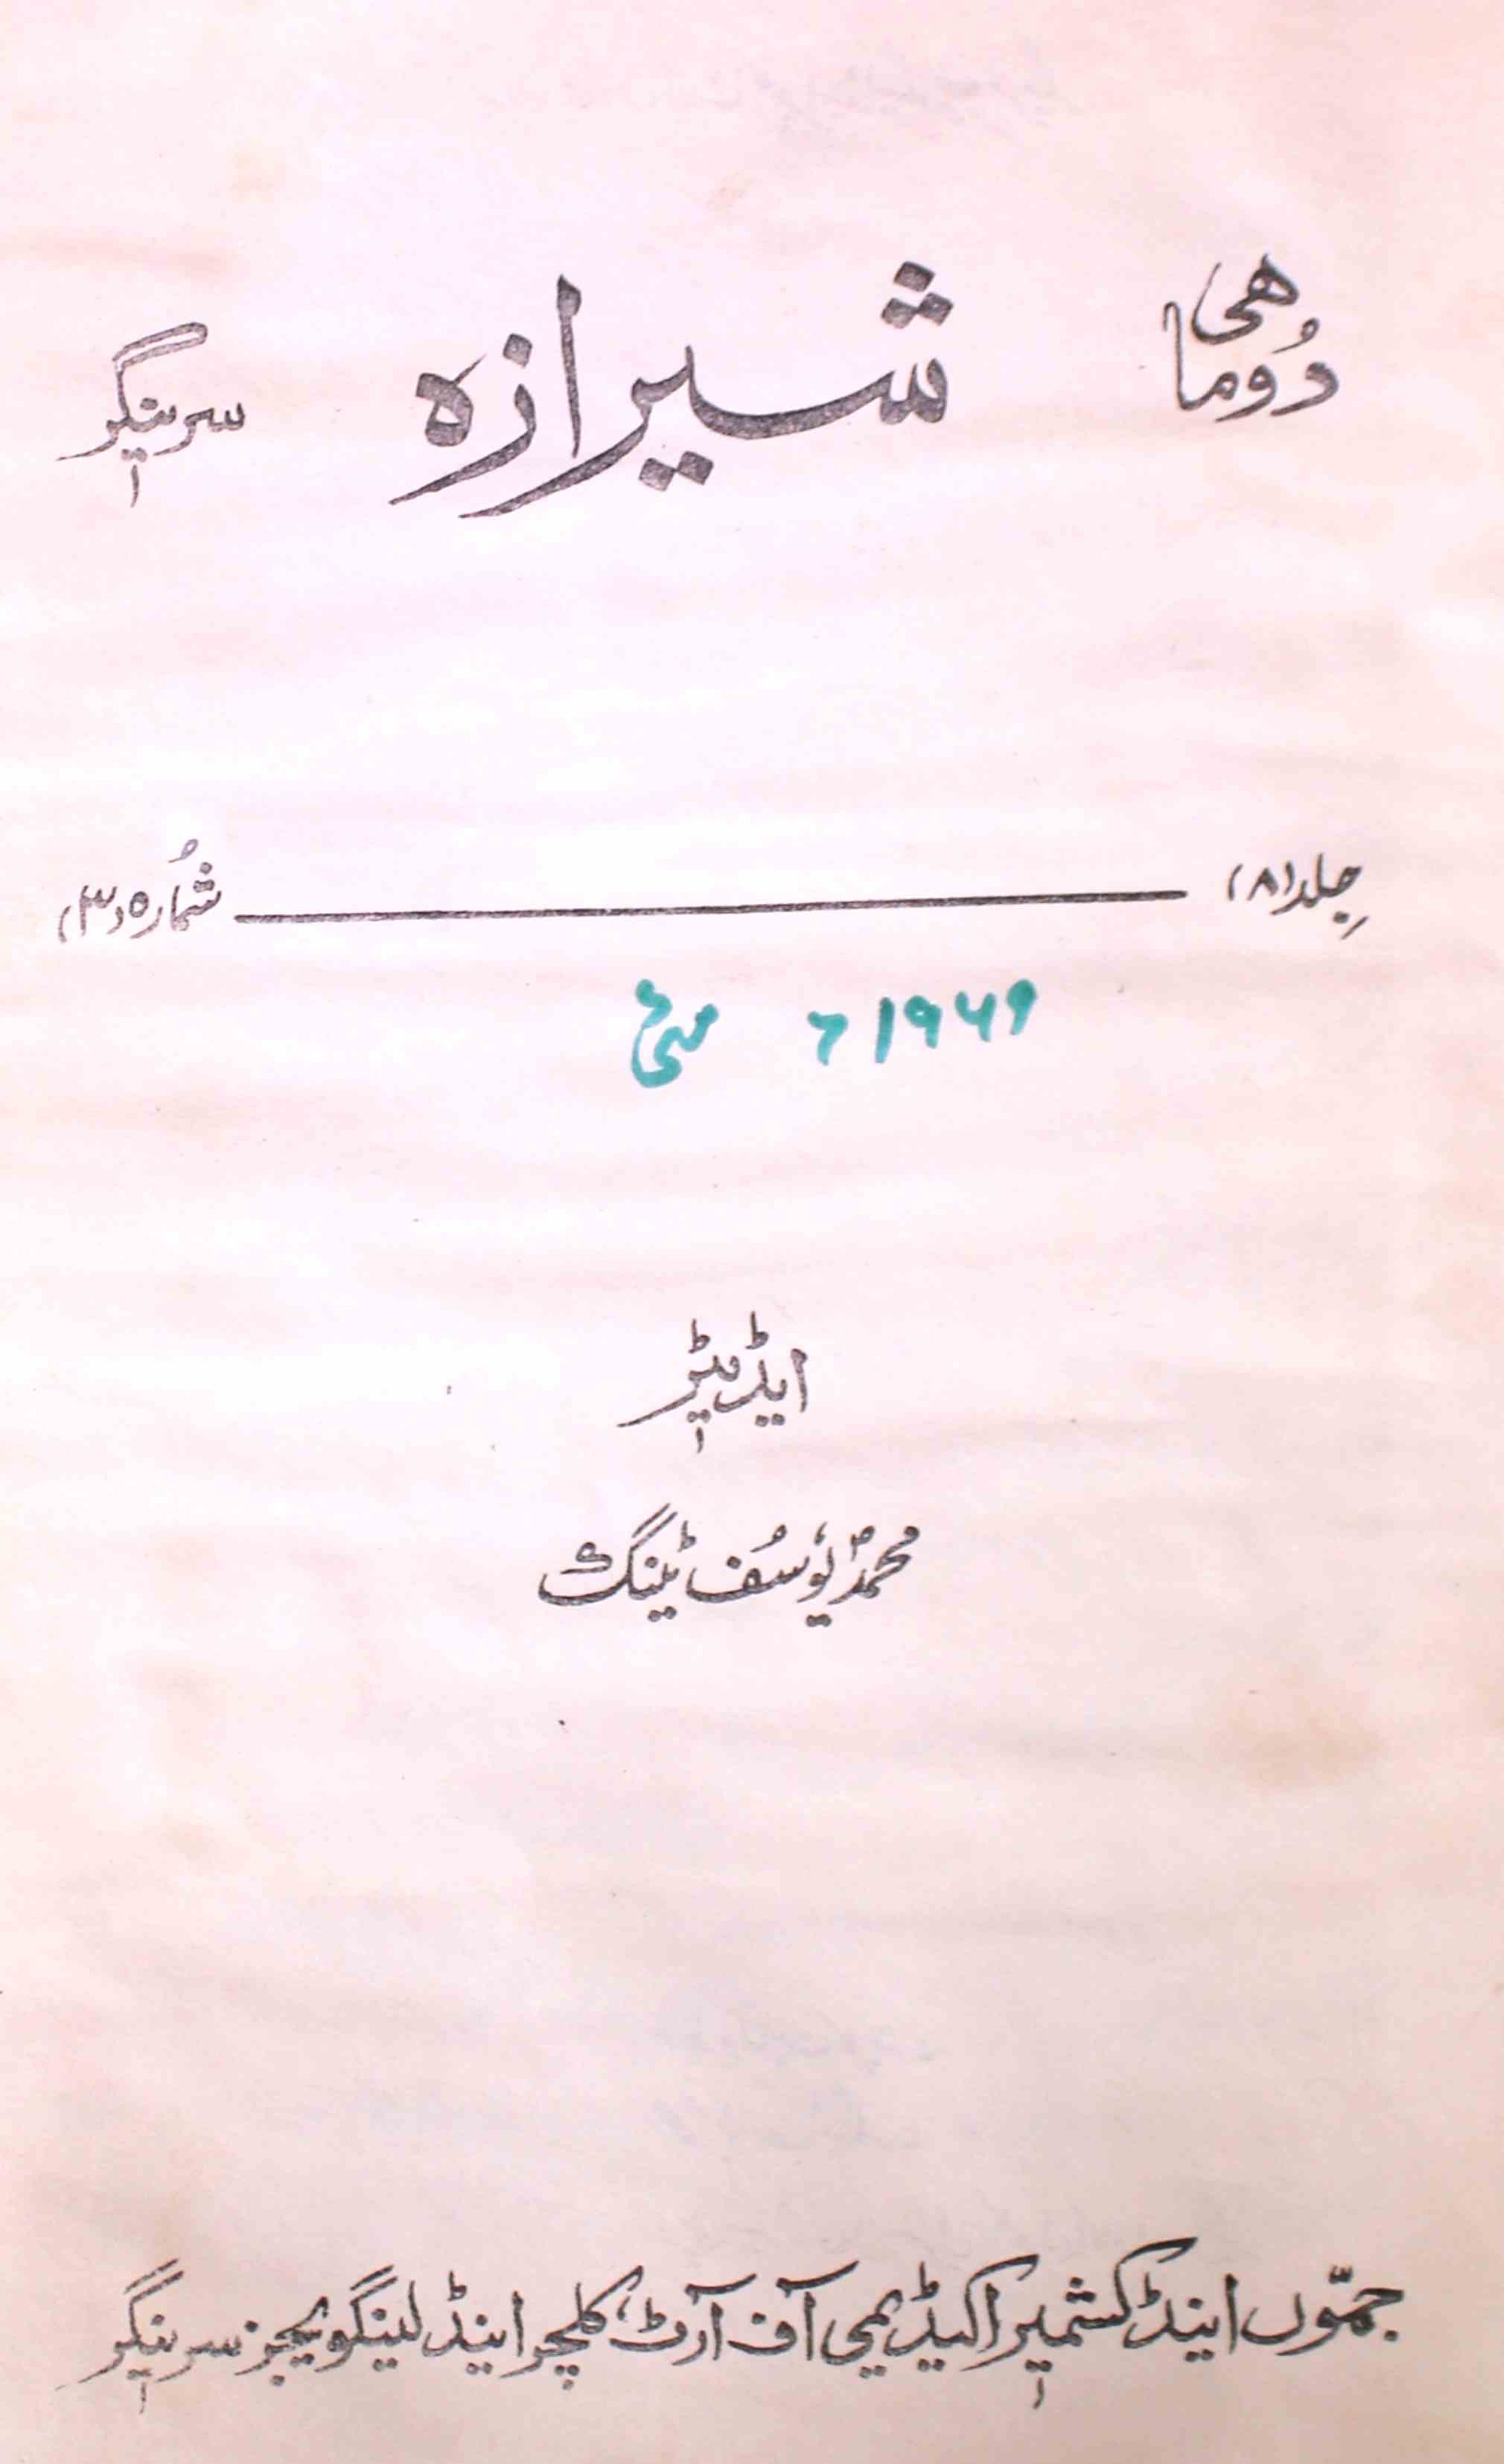 دُوماهی شیرازہ سرینگر
جِلد (۸) شُمارہ (۳)
۱۹۶۹ء مئی
ایڈیٹر
محمد یوسُف ٹینگ
جمّوں اینڈ کشمیر اکیڈیمی آف آرٹ، کلچر اینڈ لینگویجز سرینگر